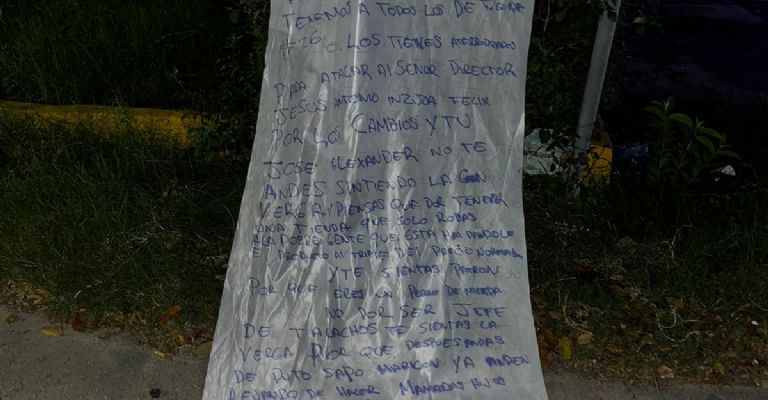 TENEMOS A TODOS LOS DE TIJERA
#26. LOS TIENES ATERRORIZADOS
PARA ATACAR Al SEÑOR DIRECTOR
JESUS ANTONIO INZUZA FELIX
POR LOS CAMBIOS Y TU
JOSE ALEXANDER NO TE
ANDES SINTIENDO LA GRN
VERGA Y PIENSAS QUE POR TENER
UNA TIENDA QUE SOLO ROBAS
A LA POBRE GENTE QUE ESTA HAI DANDOLE
El PRODUCTO Al TRIPLE DEl NORMAL
Y TE SIENTAS PATRON
POR QUE ERES UN PERRO DE MIERDA
NO POR SER JEFE
DE TALACHOS TE SIENTAS LA
VERGA POR QUE DESPUES ANDAS
DE PUTO SAPO MARICON YA ANDEN
DEJANDO DE HACER MAMADAS HIJOS